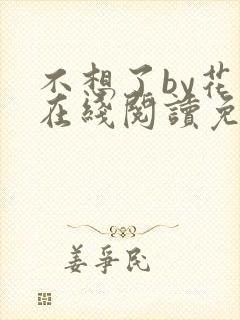 不想了by花
在綫閱讀免
姜爭民